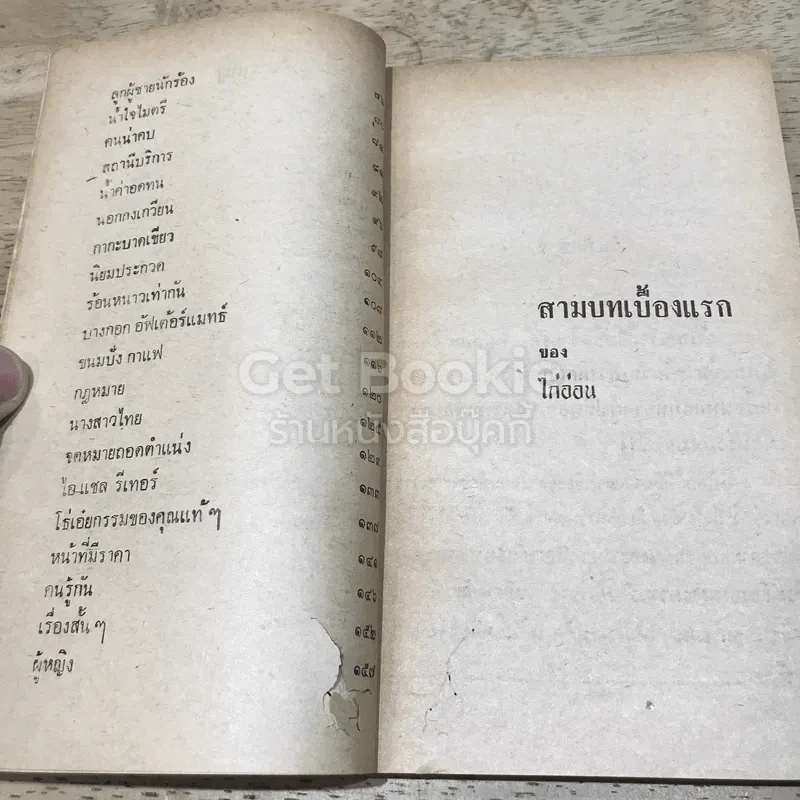 ลูกผู้ชายนักร้อง ๗๖
น้ำใจไมตรี
คนน่าคบ
สถานีบริการ
น้ำค่าอดทน ๙๒
นอกกงเกวียน ๙๖
กากะบาดเขียว ๙๘
นิยมประกวด ๑๐๔
ร้อนหนาวเท่ากัน ๑๐๘
บางกอก อัฟเต้อร์แมทธ์ ๑๑๒
ขนมปัง กาแฟ
กฎหมาย ๑๒๐
นางสาวไทย ๑๒๕
จดหมายถอดตำแน่ง ๑๒๙
ไอ แชล รีเทอร์ ๑๓๓
โธ่เอ๋ยกรรมของคุณแท้ ๆ ๑๓๗
หน้าที่มีราคา ๑๔๑
คนรู้กัน ๑๔๖
เรื่องสั้น ๆ ๑๕๒
ผู้หญิง ๑๕๗
สามบทเบื้องแรก
ของ
ไก่อ่อน
Get Booki
ร้านหนังสือบุ๊คกี้